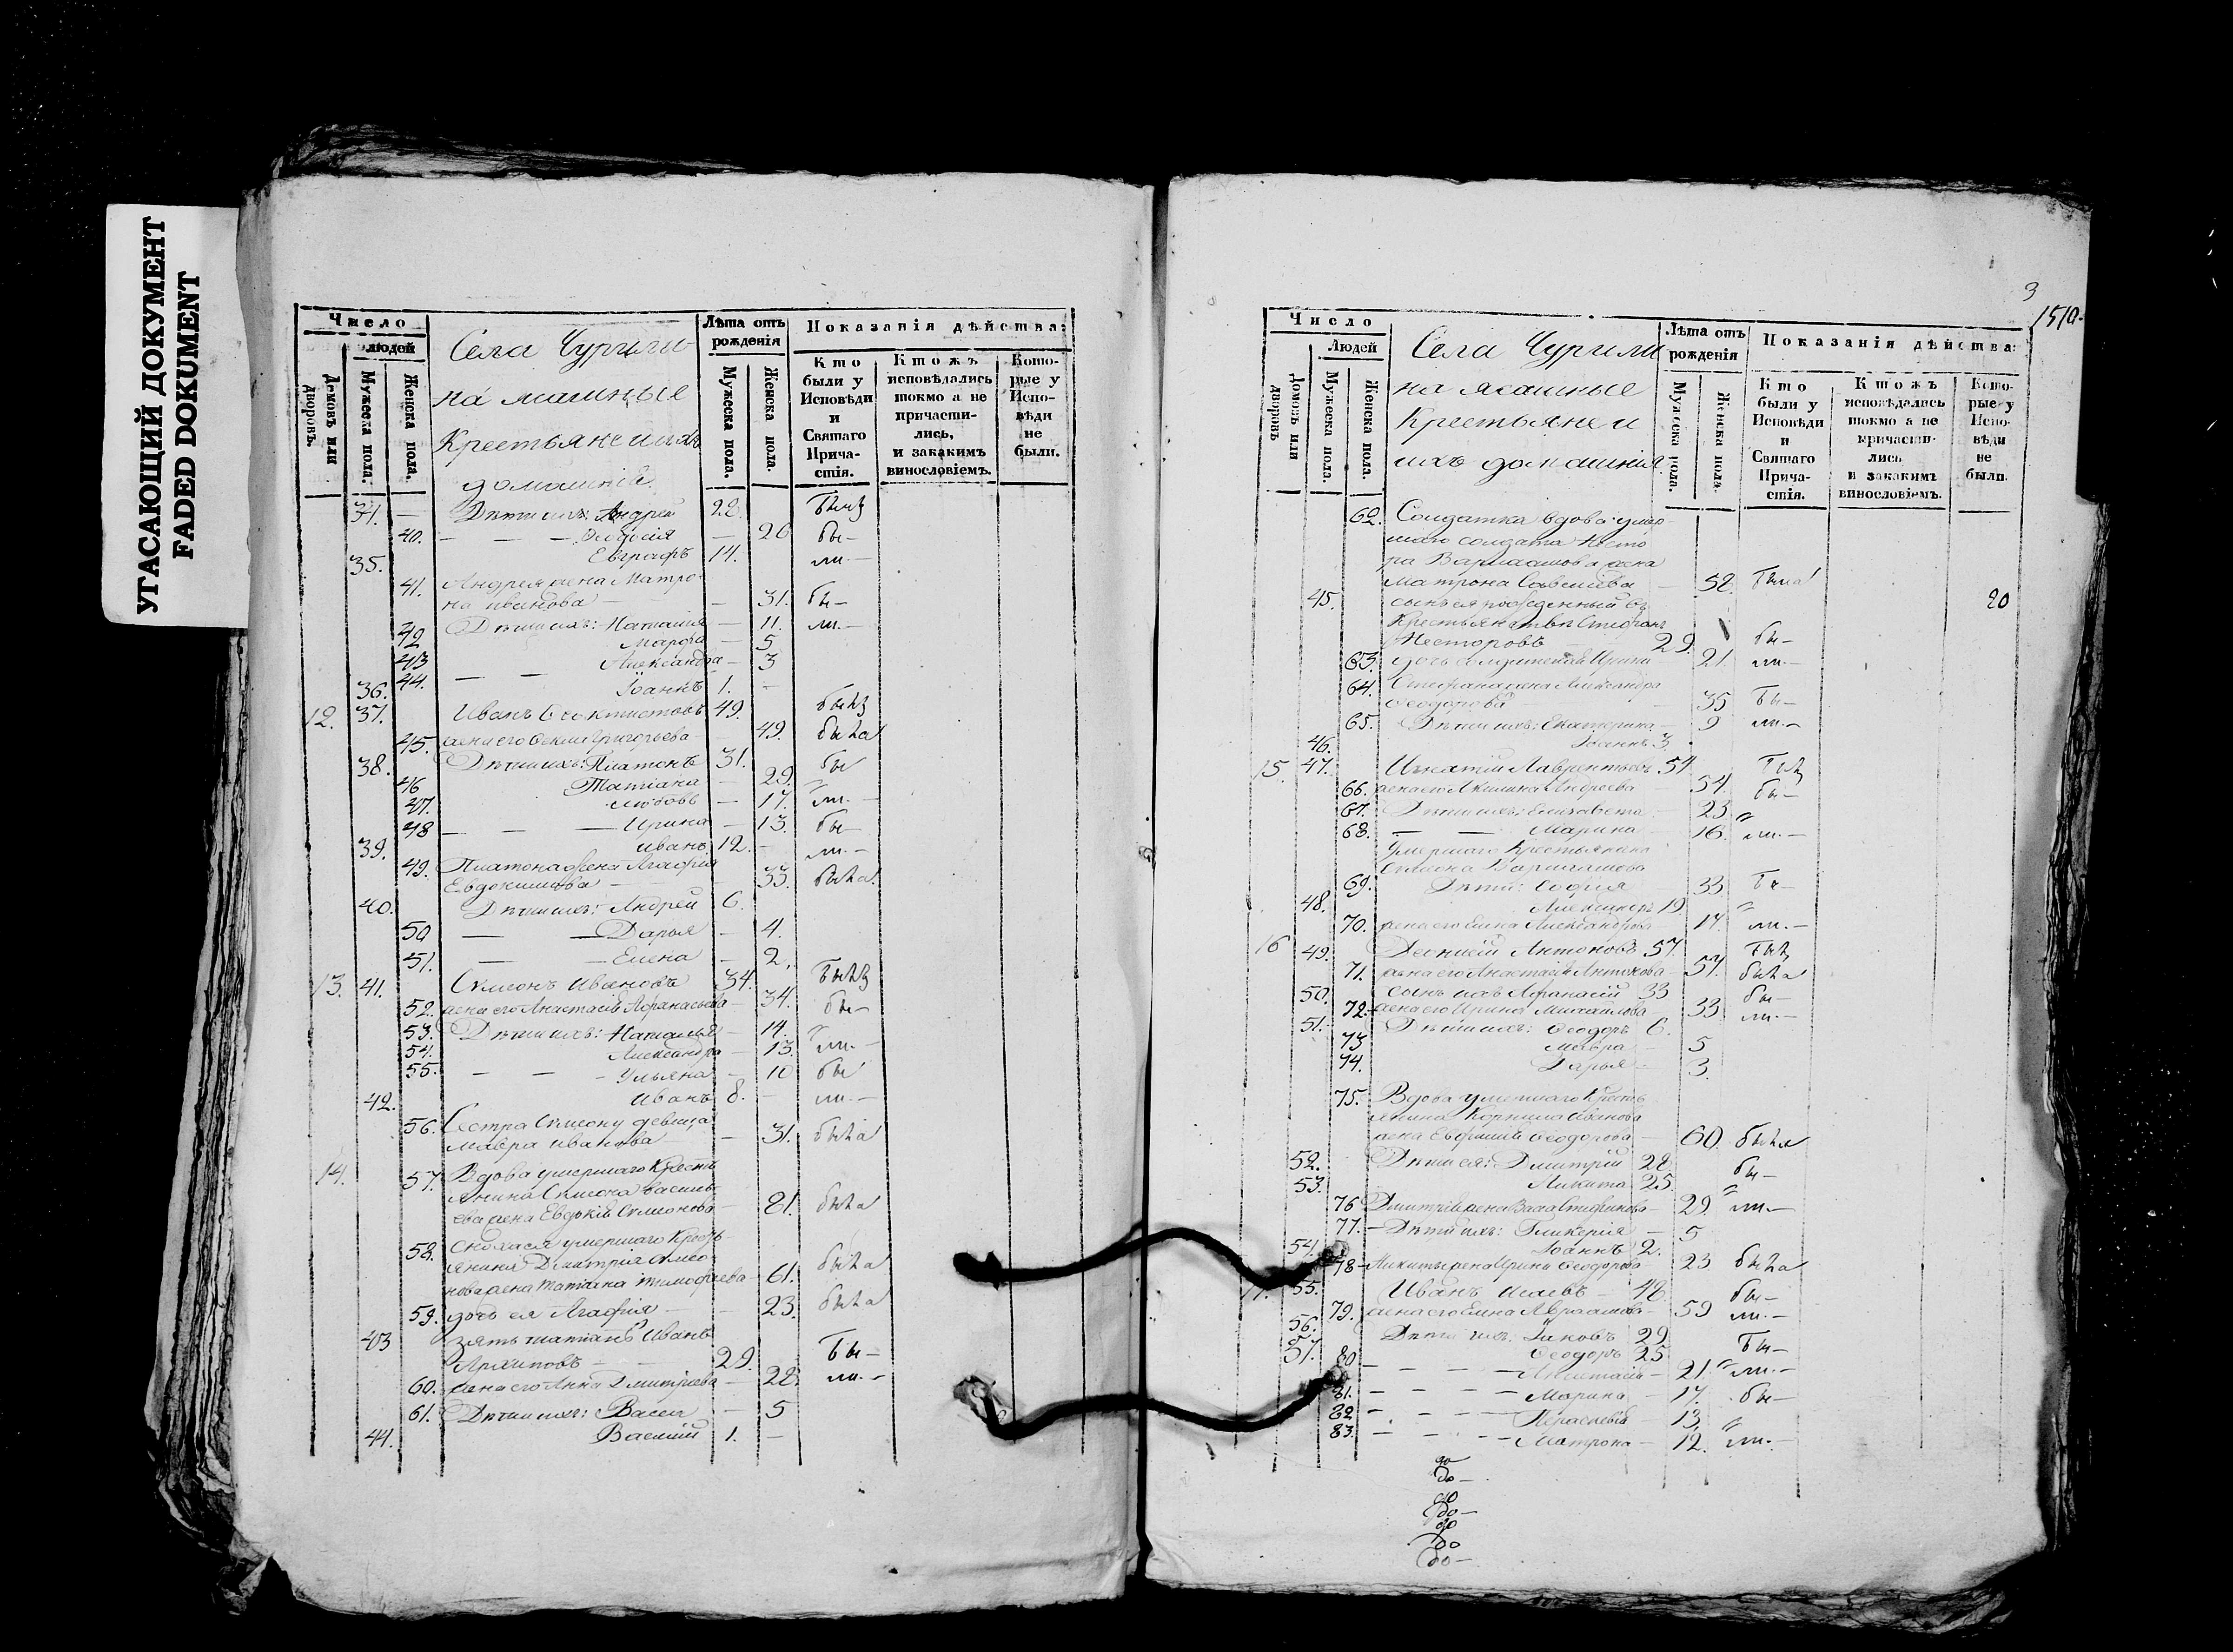 УГАСАЮЩИЙ ДОКУМЕНТ
FADED DOKUMENT
Число
людей
Домовъ или дворовъ.
Мужеска пола.
Женска пола.
Села Чурили
на
Крестьяне ихъ
домашнія.
Лѣта отъ рожденія
Мужеска пола.
Женска пола.
Показанія дѣйства:
Кто были у Исповѣди и Святаго Прича-стія.
Ктожъ исповѣдались токмо а не причасти-лись, и закакимъ винословіемъ.
Кото-рые у Испо-вѣди не были.
— Дѣти ихъ: Андрей 28.
40. — — — Ѳеодосія — 20 бы—
35. Евграфъ 14. ли.—
41. Андрея жена Матро-
на Иванова — — 31. бы—
42 Дѣти ихъ: Наталія — 11. ли.—
— 5
43 Александра — 3
44. — —
36. Іоаннъ 1. —
12. 37. Иванъ Ѳеоктистовъ 49.
45. жена его Григорьева 49. была
38. Дѣти ихъ: Платонъ 31. бы
46 Татіана — 29. "
47. Любовь — 17. ли.—
48 — — — Ирина — 13. бы—
39. Иванъ 12. — ли.—
49. Платона жена Агафія
Евдокимова — 33. была
40. Дѣти ихъ: Андрей 6.
50 — — Дарья — 4.
51. — — Елена — 2.
13. 41. Симеонъ Ивановъ 34.
52. жена его Анастасія Афанасьева — 34. бы—
53. Дѣти ихъ: Наталья — 14. "
54. Александра — 13. ли.—
55. — — — Ульяна — 10 бы
42. Иванъ 8. — ли.—
56. Сестра Симеону девица
Мавра Иванова — 31. была
14. 57. Вдова умершаго Кресть
янина Симеона Василь
ева жена Евдокія Симеонова — 81. была
58. умершаго Кресть-
янина Димитрія Симео
нова жена Татіана Тимофеева — 61. была
59. дочь ея Агафія — — 23. была
43 зять Иванъ
Архиповъ — 29. Бы—
60. жена его Анна Дмитріева — 28. ли.—
61. Дѣти ихъ: — 5
44. Василій 1. —
3
1519.
Число
Людей
Домовъ или дворовъ
Мужеска пола.
Женска пола.
Села Чурили
на ясашные
Крестьяне и
ихъ домашнія.
Лѣта отъ рожденія
Мужеска пола.
Женска пола.
Показанія дѣйства:
Кто были у Исповѣди и Святаго Прича-стія.
Ктожъ исповѣдались токмо а не причасти-лись и закакимъ винословіемъ.
Кото-рые у Испо-вѣди не были.
62. Солдатка вдова умер-
шаго солдата Несто
ра Варлаамова жена
Матрона Савельева — 58. Была
45. сынъ ея рожденный въ 20
Крестьянствѣ Стефанъ
Несторовъ 29. бы—
63. дочь солдатская Ирина 21. ли.—
64. Стефана жена Александра
Ѳеодорова — 35 Бы—
65. Дѣти ихъ: Екатерина — 9 ли.—
46. Іоаннъ 3.
15. 47. Игнатій Лаврентьевъ 54
66. жена его Акилина Андреева 54. бы—
67. Дѣти ихъ: Елизавета 23 "
68. — — Марина — 16. ли.—
Умершаго Крестьянина
Симеона
69. Дѣти: Софія — 33
48. Александръ 19. "
70. жена его Елена Александрова 17. ли.—
16 49. Антоновъ 57.
71. жена его Анастасія 57. была
50. сынъ ихъ Афанасій 33 бы—
72. жена его Ирина Михайлова 33 ли.—
51. Дѣти ихъ: Ѳеодоръ 6.
73 Мавра — 5
74. Дарья — 3.
75. Вдова умершаго Кресть
янина Корнила Иванова
жена Евфимія Ѳеодорова — 60. была
52. Дѣти ея: Дмитрій 28 бы—
53. Никита 25. "
76 Дмитрія жена Васса Стефанова — 29. ли.—
77. — Дѣти ихъ: Гликерія — 5
54. Іоаннъ 2.
78 Никиты жена Ирина Ѳеодорова 23 была
17. 55. Иванъ Исаевъ — 48. бы—
79. жена его Елена Авраамова — 59 ли.—
56. Дѣти ихъ: Іаковъ 29.
57. Ѳеодоръ 25 Бы—
80 — — — — Анастасія — 21. " ли.—
81. — — — — Марина — 17. бы—
82 — — — — Параскевія — 13. "
83. — — — Матрона — 12. ли.